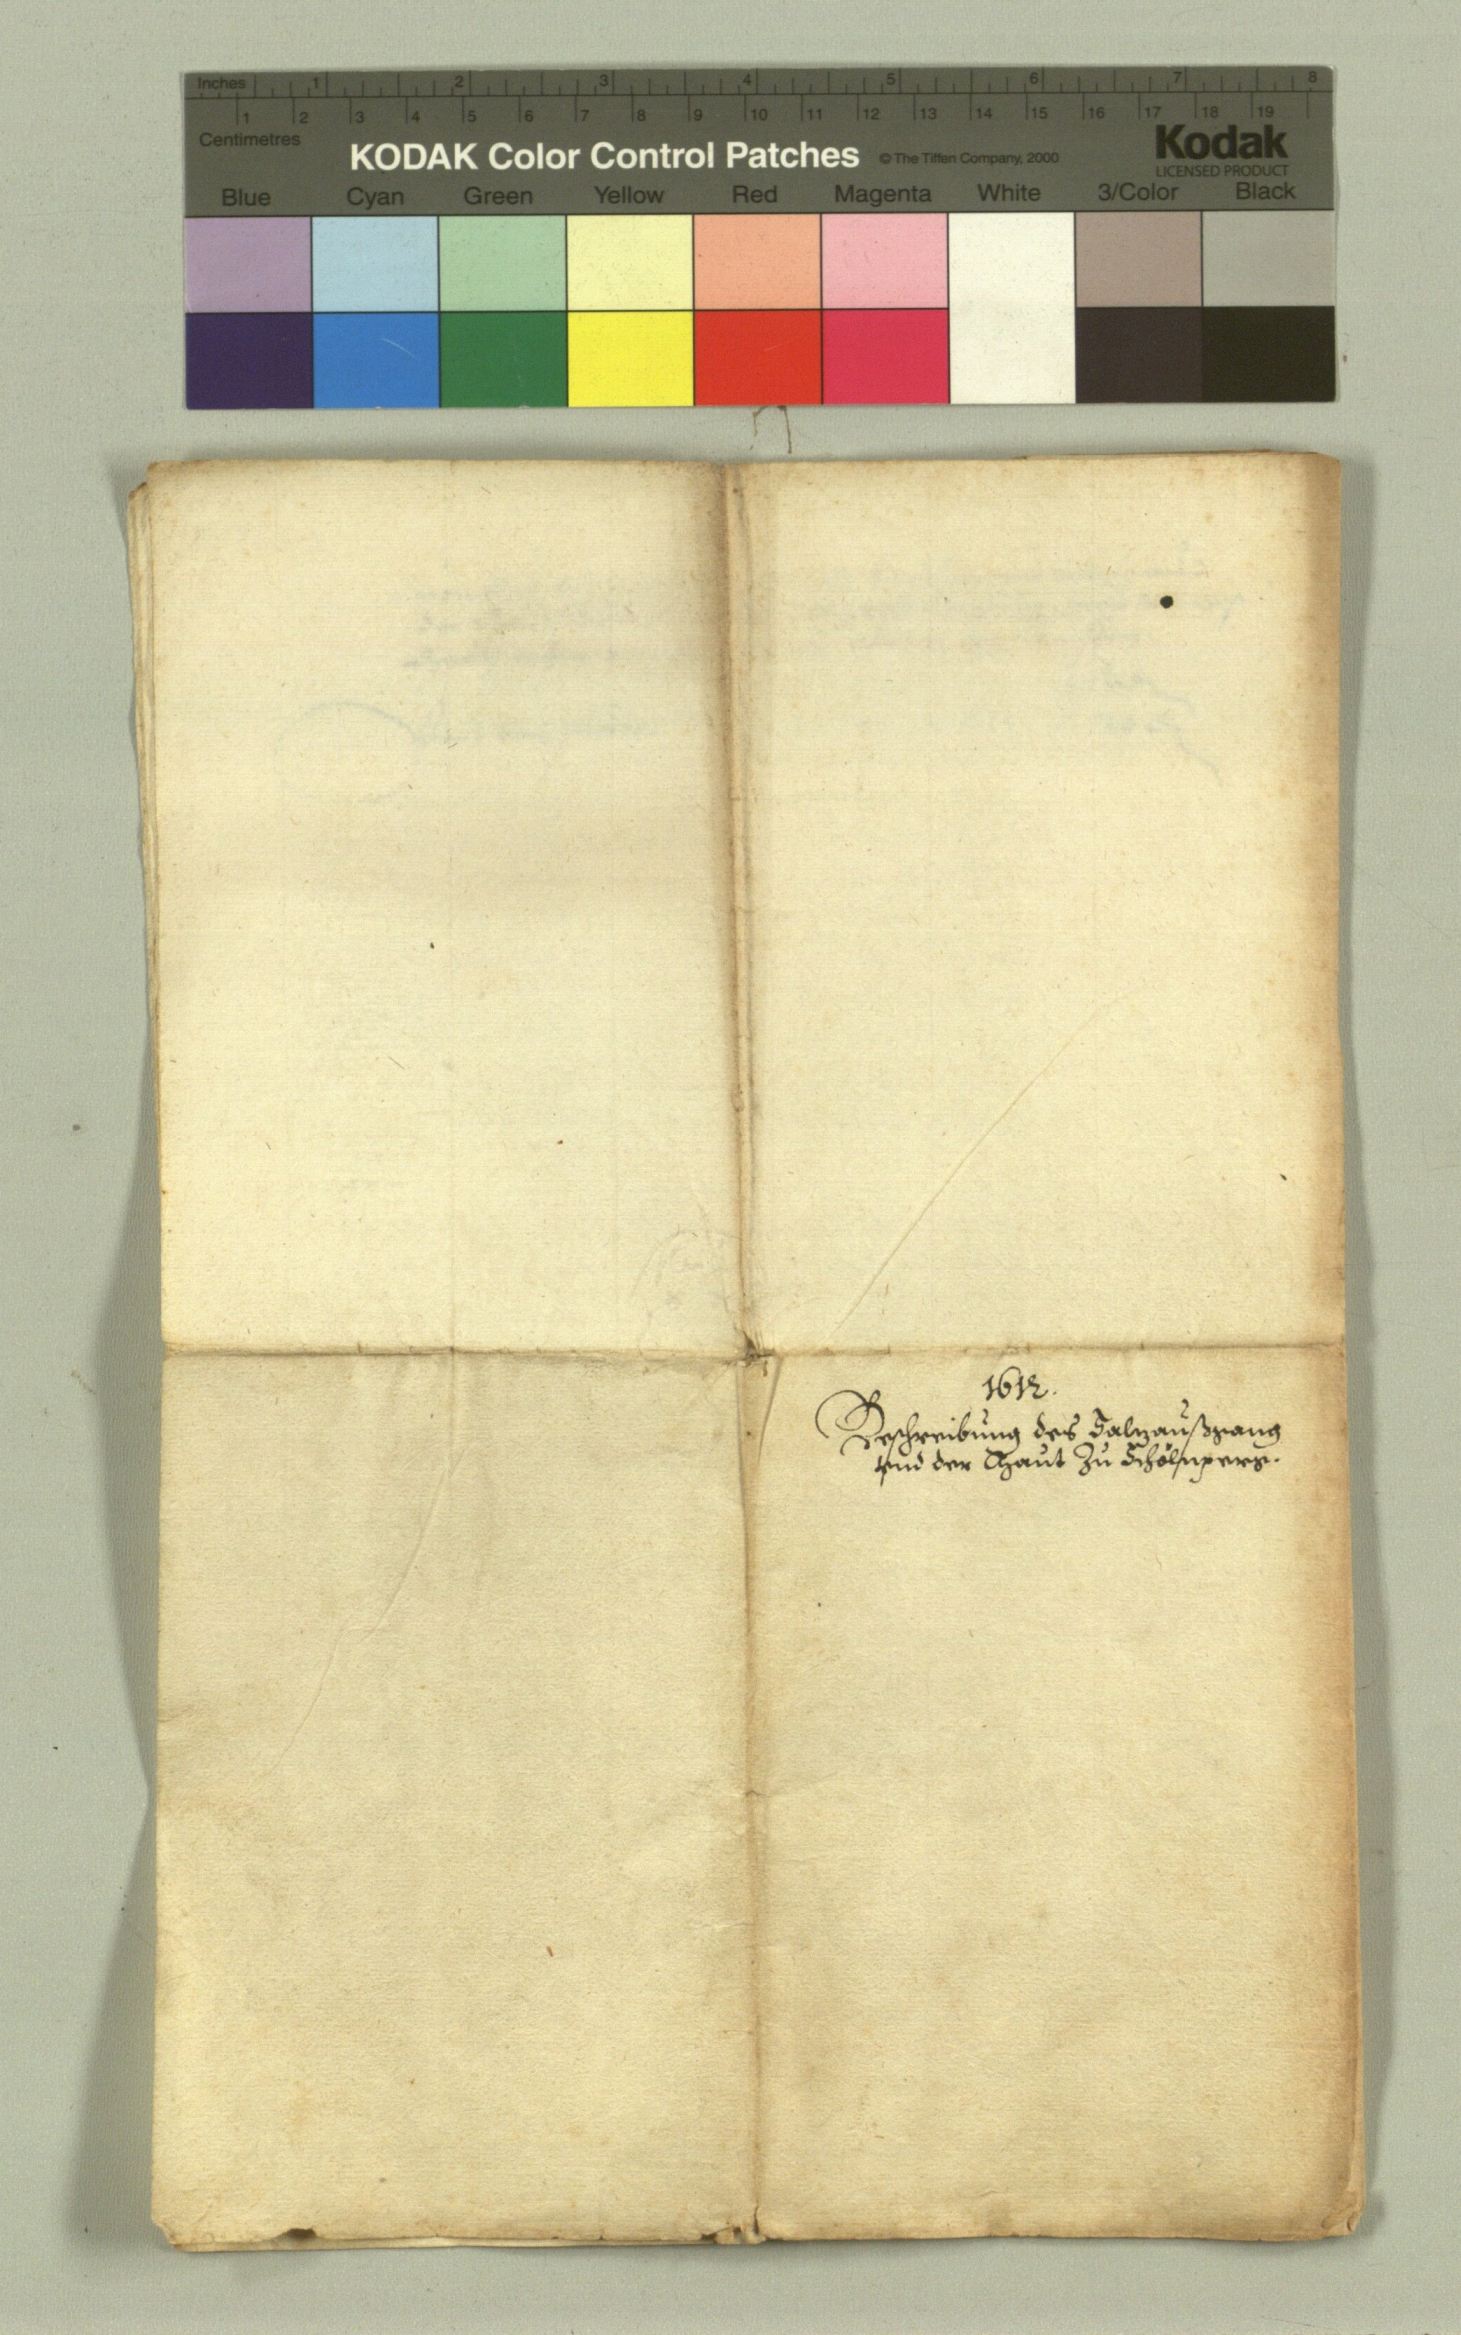 Inches 1 2 3 4 5 6 7 8
1 2 3 4 5 6 7 8 9 10 11 12 13 14 15 16 17 18 19
Centimetres
KODAK Color Control Patches © The Tiffen Company, 2000 Kodak
LICENSED PRODUCT
Blue Cyan Green Yellow Red Magenta White 3/Color Black
1612.
Beschreibung des
der Zu